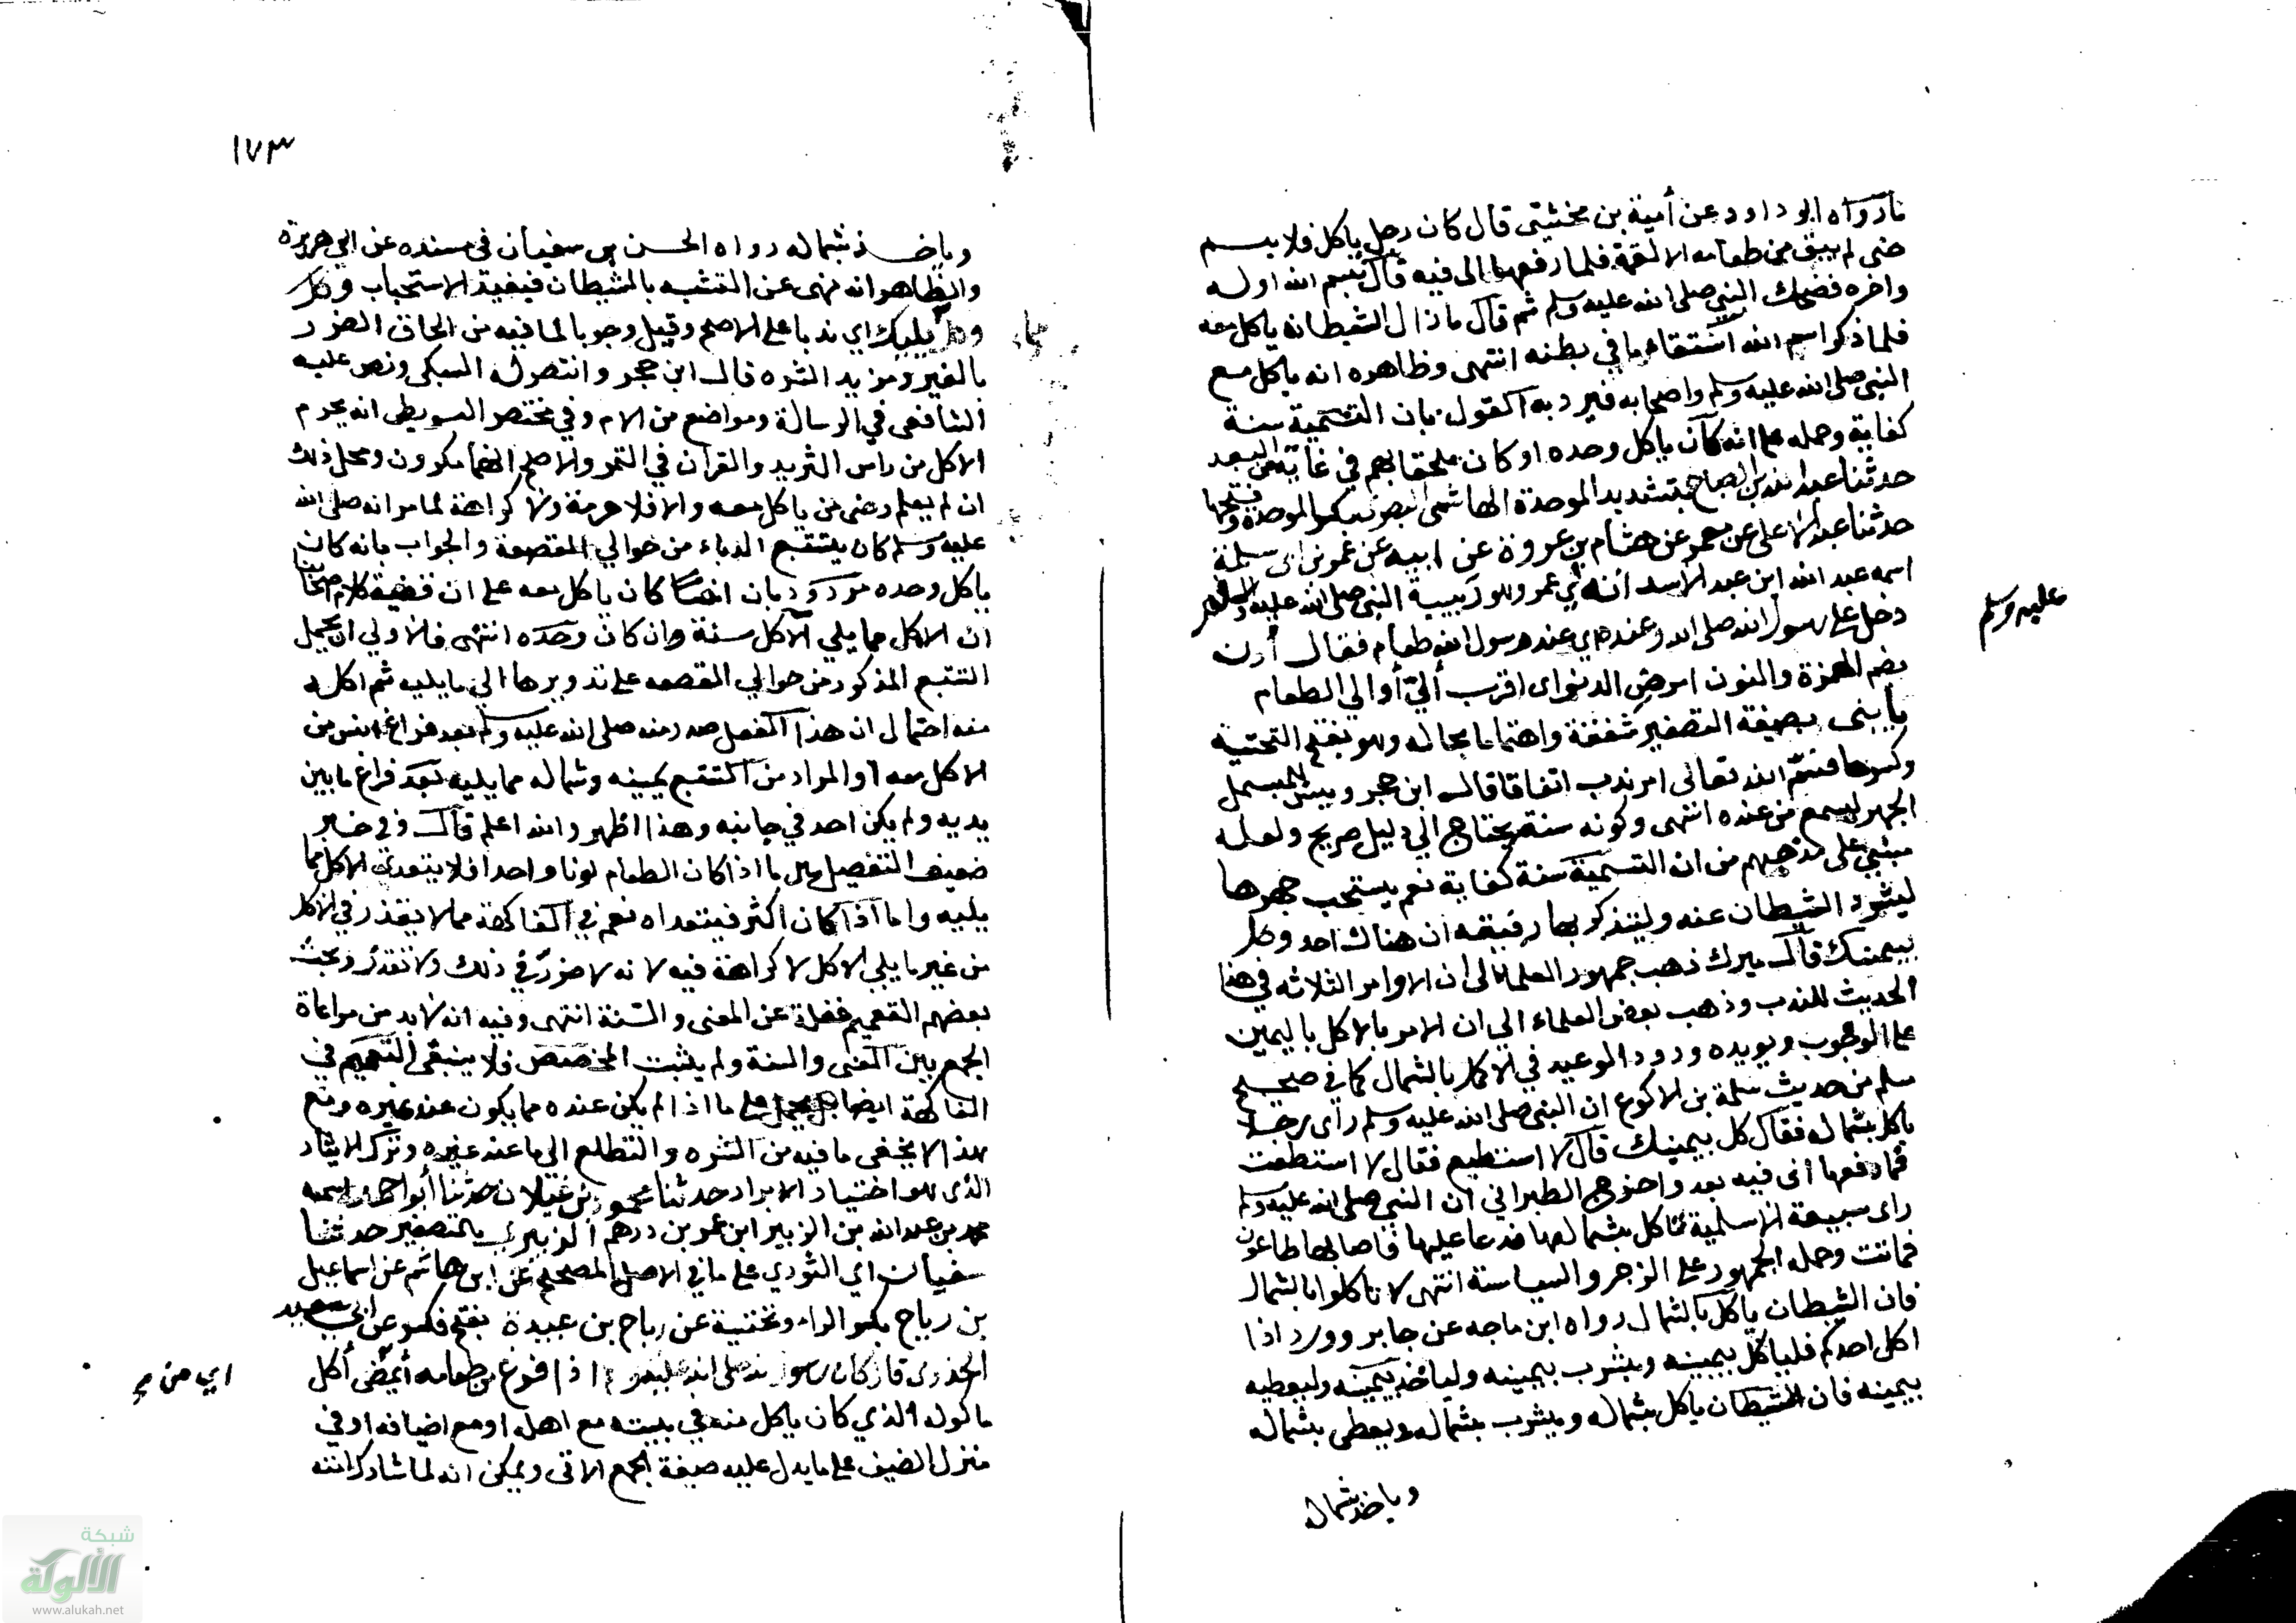 ما رواه ابو داود عن أمية بن مخشي قال كان رجل ياكل فلا يسم
حتى لم يبق من طعامه الا لقمة فلما رفعها الى فيه قال بسم الله اوله
واخره فضحك النبي صلى الله عليه وسلم ثم قال ما زال الشيطان ياكل معه
فلما ذكر اسم الله استقاء ما في بطنه انتهى وظاهره انه ياكل مع
النبي صلى الله عليه وسلم واصحابه فيرد به القول بان التسمية سنة
كفاية وحمله على انه كان ياكل وحده او كان ملحقا بهم في غاية من البعد
حدثنا عبد الله بن الصباح بتشديد الموحدة الهاشمي البصري بكسر الموحدة وفتحها
حدثنا عبد الاعلى عن معمر عن هشام بن عروة عن ابيه عن عمر بن ابي سلمة
اسمه عبد الله ابن عبد الأسد انه اي عمر وهو ربيبة النبي صلى الله عليه وسلم
دخل على رسول الله صلى الله وعنده اي عند رسول الله طعام فقال أدن
عليه وسلم
بضم الهمزة والنون امر من الدنو اى اقرب أليّ أو الى الطعام
يا بنى بصيغة التصغير شفقة واهتماما بحاله وهو بفتح التحتية
وكسرها فسم الله تعالى امر ندب اتفاقا قال ابن حجر ويسن للمبسمل
الجهر ليسمع من عنده انتهى وكونه سنة يحتاج الى دليل صريح ولعله
مبني على مذهبهم من ان التسمية سنة كفاية نعم يستحب جهرها
ليشرد الشيطان عنه وليتذكر بها رفيقه ان هناك احد وكل
بيمينك قال ميرك ذهب جمهور العلماء الى ان الاوامر الثلاثه في هذا
الحديث للندب وذهب بعض العلماء الي ان الامر بالاكل باليمين
على الوجوب ويويده ورود الوعيد في الاكل بالشمال كما في صحيح
مسلم من حديث سلمة بن الاكوع ان النبى صلى الله عليه وسلم رأى رجلا
ياكل بشماله فقال كل بيمينك قال لا استطيع فقال لا استطعت
فما رفعها الى فيه بعد واخرج الطبراني ان النبي صلى الله عليه وسلم
راى سبيعة الاسلمية تاكل بشمالها فدعا عليها فاصابها طاعون
فماتت وحمله الجمهور على الزجر والسياسة انتهى لا تاكلوا بالشمال
فان الشيطان ياكل بالشمال رواه ابن ماجه عن جابر وورد اذا
اكل احدكم فلياكل بيمينه ويشرب بيمينه ولياخذ بيمينه وليعطيه
بيمينه فان الشيطان ياكل بشماله ويشرب بشماله ويعطى بشماله
وياخذ بشماله
١٧٣
وياخذ بشماله رواه الحسن بن سفيان في مسنده عن ابي هريرة
والظاهر انه نهى عن التشبه بالشيطان فيفيد الاستحباب وكل
يليك اي ندبا على الاصح وقيل وجوبا لما فيه من الحاق الضرر
مما
بالغير ومزيد الشره قال ابن حجر وانتصر له السبكي ونص عليه
الشافعى في الرسالة ومواضع من الام وفي مختصر البويطى انه يحرم
الاكل من راس الثريد والقرآن في التمر والاصح انهما مكروهان ومحل ذلك
ان لم يعلم رضى من ياكل معه والا فلا حرمة ولا كراهة لما مر انه صلى الله
عليه وسلم كان يتتبع الدباء من حوالي القصعة والجواب بانه كان
ياكل وحده مردود بان انسا كان ياكل معه على ان قضية كلام اصحابنا
ان الاكل مما يلي الآكل سنة وان كان وحده انتهى فالاولي ان يحمل
التتبع المذكور من حوالي القصعه على تدويرها الي ما يليه ثم اكله
منه احتمال ان هذا الفعل صدر منه صلى الله عليه وسلم بعد فراغ انس من
الاكل معه او المراد من التتبع يمينه وشماله مما يليه بعد فراغ ما بين
يديه ولم يكن احد في جانبه وهذا اظهر والله اعلم قال وفي خبر
ضعيف التفصيل بين ما اذا كان الطعام لونا واحدا فلا يتعدى الاكل مما
يليه واما اذا كان اكثر فيتعداه نعم في الفاكهة مما لا يقذر في الاكل
من غير ما يلي الاكل لا كراهة فيه لانه لا ضرر في ذلك ولا تقذر وبحث
بعضهم التعميم غفلة عن المعنى والسنة انتهى وفيه انه لا بد من مراعاة
الجمع بين المعنى والسنة ولم يثبت المخصص فلا ينبغي التعميم في
الفاكهة ايضا بل يحمل على ما اذا لم يكن عنده مما يكون عند غيره ومع
هذا لا يخفى ما فيه من الشره والتطلع الى ما عند غيره وترك الايثار
الذى هو اختيار الابرار حدثنا محمود بن غيلان حدثنا أبو احمد واسمه
محمد بن عبد الله بن الزبير ابن عمر بن درهم الزبيري بالتصغير حدثنا
سفيان اي الثوري على ما في الاصل المصحح عن ابي هاشم عن اسماعيل
بن رياح بكسر الراء وتحتية عن رياح بن عبيدة بفتح فكسر عن ابي سعيد
الخدرى قال كان رسول الله صلى الله عليه وسلم اذا فرغ من طعامه أي من أكل
اي من
ماكوله الذي كان ياكل منه في بيته مع اهله او مع اضيافه او في
منزل الضيف على ما يدل عليه صيغة الجمع الاتى ويمكن انه لما شارك امته
شبكة
الألوكة
www.alukah.net